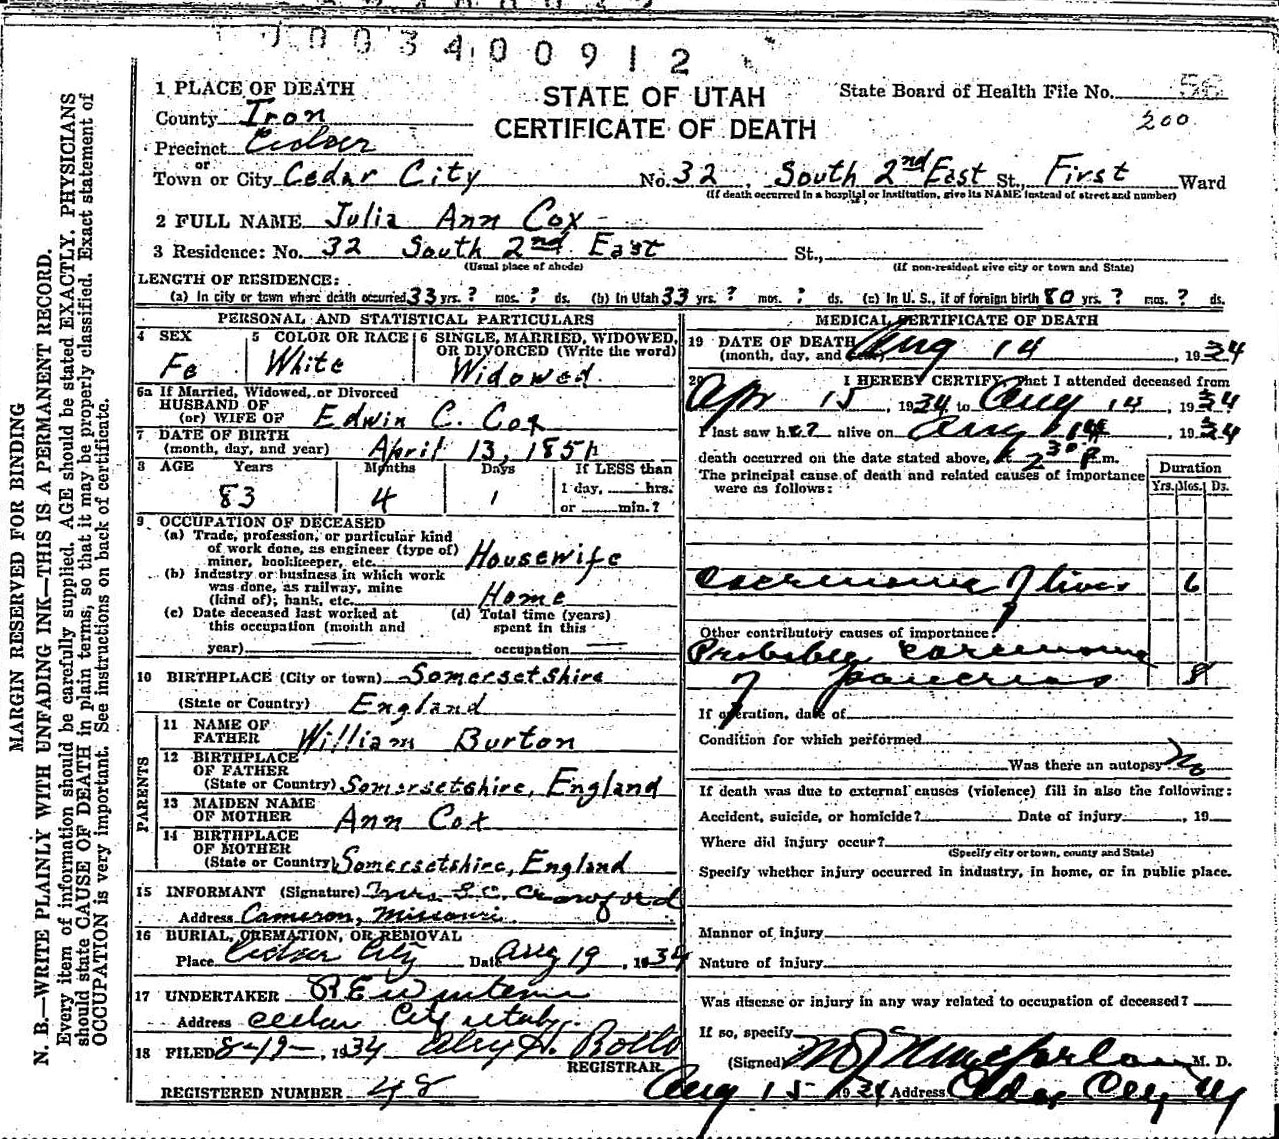 0003400912
1 PLACE OF DEATH
STATE OF UTAH
CERTIFICATE OF DEATH
State Board of Health File No. 56
200
County Iron
Precinct Cedar
or
Town or City Cedar City No. 32 South 2nd East St., First Ward
(If death occurred in a hospital or institution, give its NAME instead of street and number)
2 FULL NAME Julia Ann Cox
3 Residence: No. 32 South 2nd East St.,
(Usual place of abode) (If non-resident give city or town and State)
LENGTH OF RESIDENCE:
(a) In city or town where death occurred 33 yrs. ? mos. ? ds. (b) In Utah 33 yrs. ? mos. ? ds. (c) In U. S., if of foreign birth 80 yrs. ? mos. ? ds.
PERSONAL AND STATISTICAL PARTICULARS
4 SEX Fe
5 COLOR OR RACE White
6 SINGLE, MARRIED, WIDOWED, OR DIVORCED (Write the word) Widowed.
6a If Married, Widowed, or Divorced
HUSBAND OF
(or) WIFE OF Edwin C. Cox
7 DATE OF BIRTH
(month, day, and year) April 13, 1851
8 AGE Years Months Days If LESS than
83 4 1 1 day, hrs.
or min.?
9 OCCUPATION OF DECEASED
(a) Trade, profession, or particular kind
of work done, as engineer (type of)
miner, bookkeeper, etc. Housewife
(b) Industry or business in which work
was done, as railway, mine
(kind of); bank, etc. Home
(c) Date deceased last worked at
this occupation (month and
year)
(d) Total time (years)
spent in this
occupation
10 BIRTHPLACE (City or town) Somersetshire
(State or Country) England
PARENTS
11 NAME OF
FATHER William Burton
12 BIRTHPLACE
OF FATHER
(State or Country) Somersetshire, England
13 MAIDEN NAME
OF MOTHER Ann Cox
14 BIRTHPLACE
OF MOTHER
(State or Country) Somersetshire, England
15 INFORMANT (Signature) Mrs. S. C. Crawford
Address Cameron, Missouri.
16 BURIAL, CREMATION, OR REMOVAL
Place Cedar City Date Aug 19, 1934
17 UNDERTAKER
Address Cedar City Utah.
18 FILED 8-19-, 1934
REGISTRAR
REGISTERED NUMBER 48
MEDICAL CERTIFICATE OF DEATH
19 DATE OF DEATH
(month, day, and year) Aug 14, 1934
20 I HEREBY CERTIFY, That I attended deceased from
Apr 15, 1934, to Aug 14, 1934
I last saw her alive on Aug 14, 1934
death occurred on the date stated above, at 2 30 P m.
The principal cause of death and related causes of importance
were as follows:
Duration
Yrs. Mos. Ds.
Carcinoma of liver 6
Other contributory causes of importance:
Probably carcinoma
of pancreas 8
If operation, date of
Condition for which performed
Was there an autopsy No
If death was due to external causes (violence) fill in also the following:
Accident, suicide, or homicide? Date of injury , 19
Where did injury occur?
(Specify city or town, county and State)
Specify whether injury occurred in industry, in home, or in public place.
Manner of injury
Nature of injury
Was disease or injury in any way related to occupation of deceased?
If so, specify
(Signed) Macfarlane M. D.
Aug 15 1934 Address Cedar City, U
MARGIN RESERVED FOR BINDING
N. B.—WRITE PLAINLY WITH UNFADING INK—THIS IS A PERMANENT RECORD.
Every item of information should be carefully supplied. AGE should be stated EXACTLY. PHYSICIANS
should state CAUSE OF DEATH in plain terms, so that it may be properly classified. Exact statement of
OCCUPATION is very important. See instructions on back of certificate.